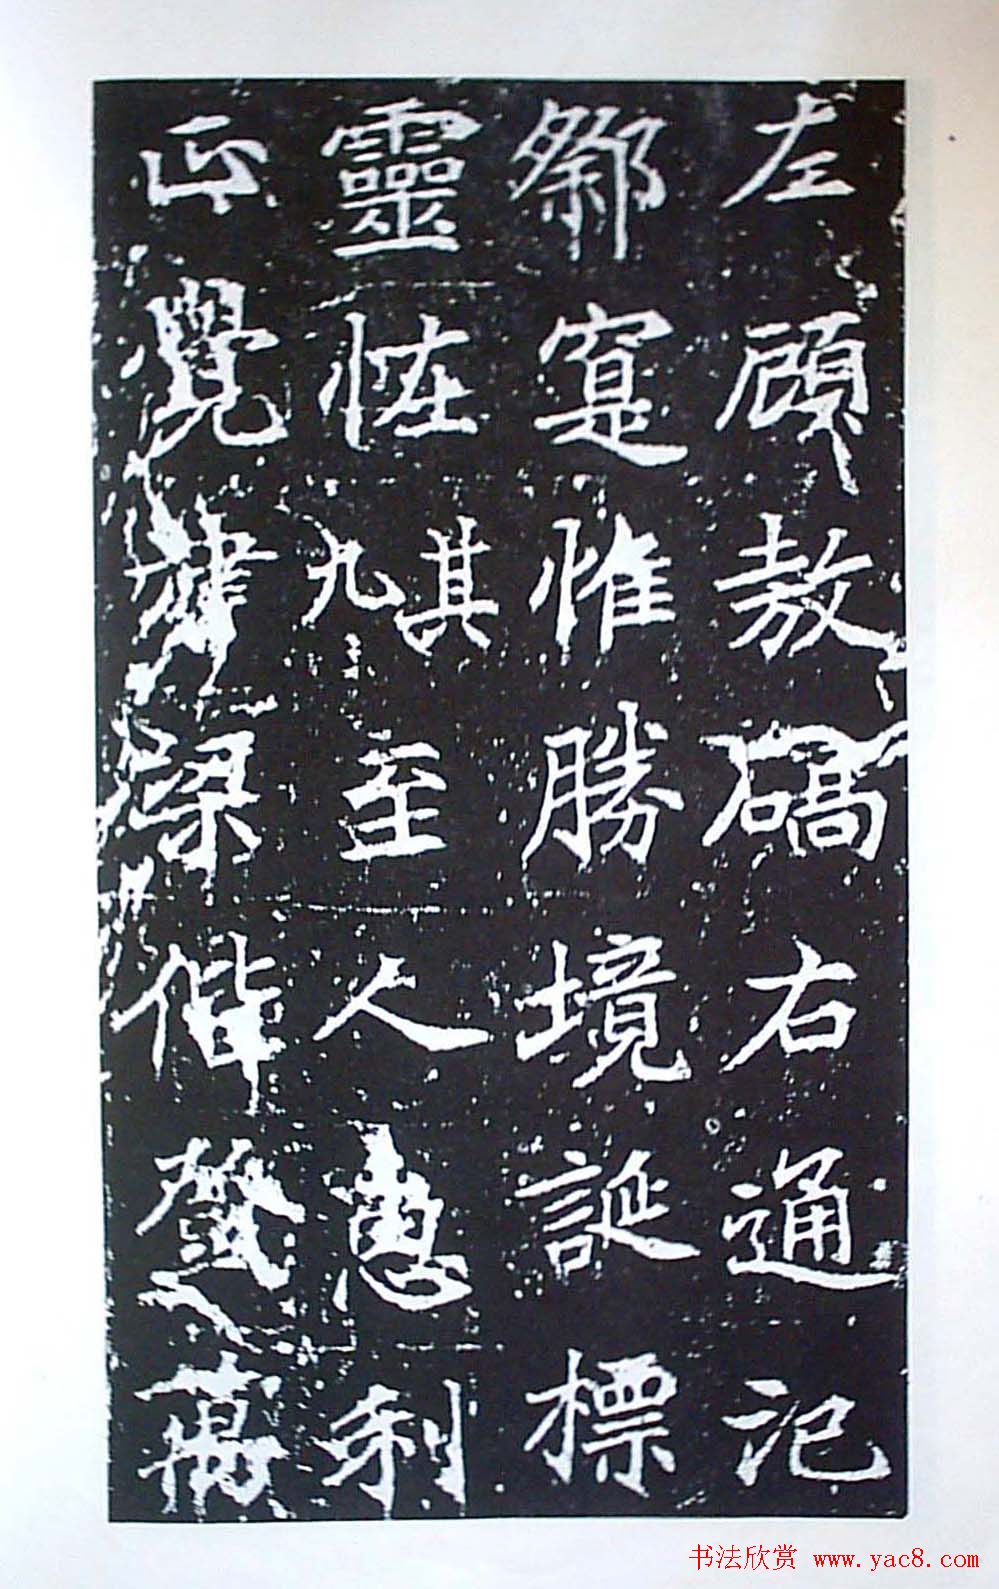 左顧敖碻右通汜
寔惟勝境誕標
靈恠其九至人惠利
正覺津梁偕登萬
书法欣赏 www.yac8.com